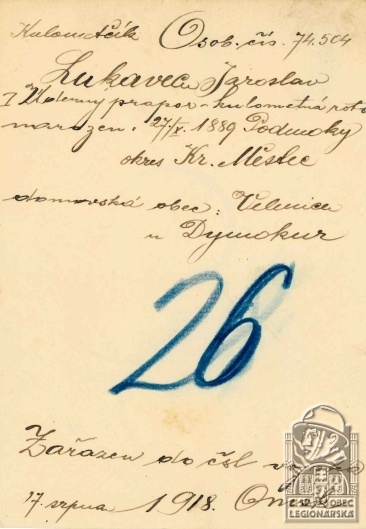 Kulometčík Osob. čís. 74.504
Lukavec Jaroslav
I Úderný prapor - kulometná rota
narozen: 27/V. 1889 Podmoky
okres Kr. Městec
domovská obec: Velenice
u Dymokur
26
Zařazen do čsl
17 srpna 1918. Omsk
OBEC
LEGIONÁŘSKÁ